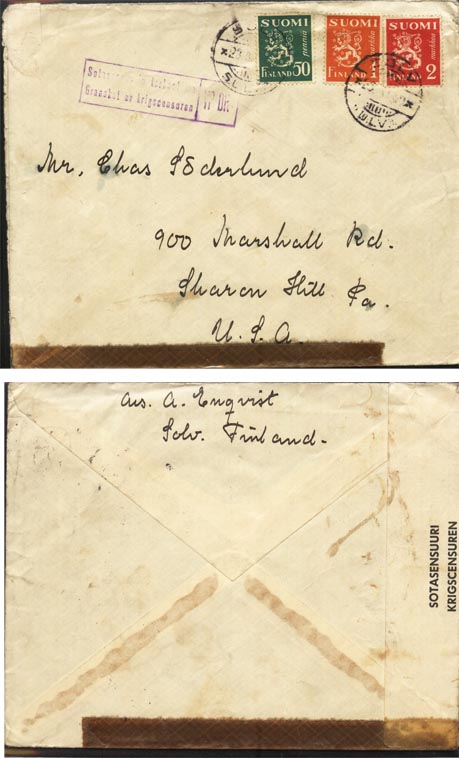 SUOMI
penniä
FINLAND 50
SUOMI
markka
FINLAND 1
SUOMI
markka
FINLAND 2
Granskat av krigscensuren
Mr. Chas Söderlund
900 Marshall Rd.
Sharon Hill Pa.
U. S. A.
avs. A. Enqvist
Solv. Finland.
SOTASENSUURI
KRIGSCENSUREN